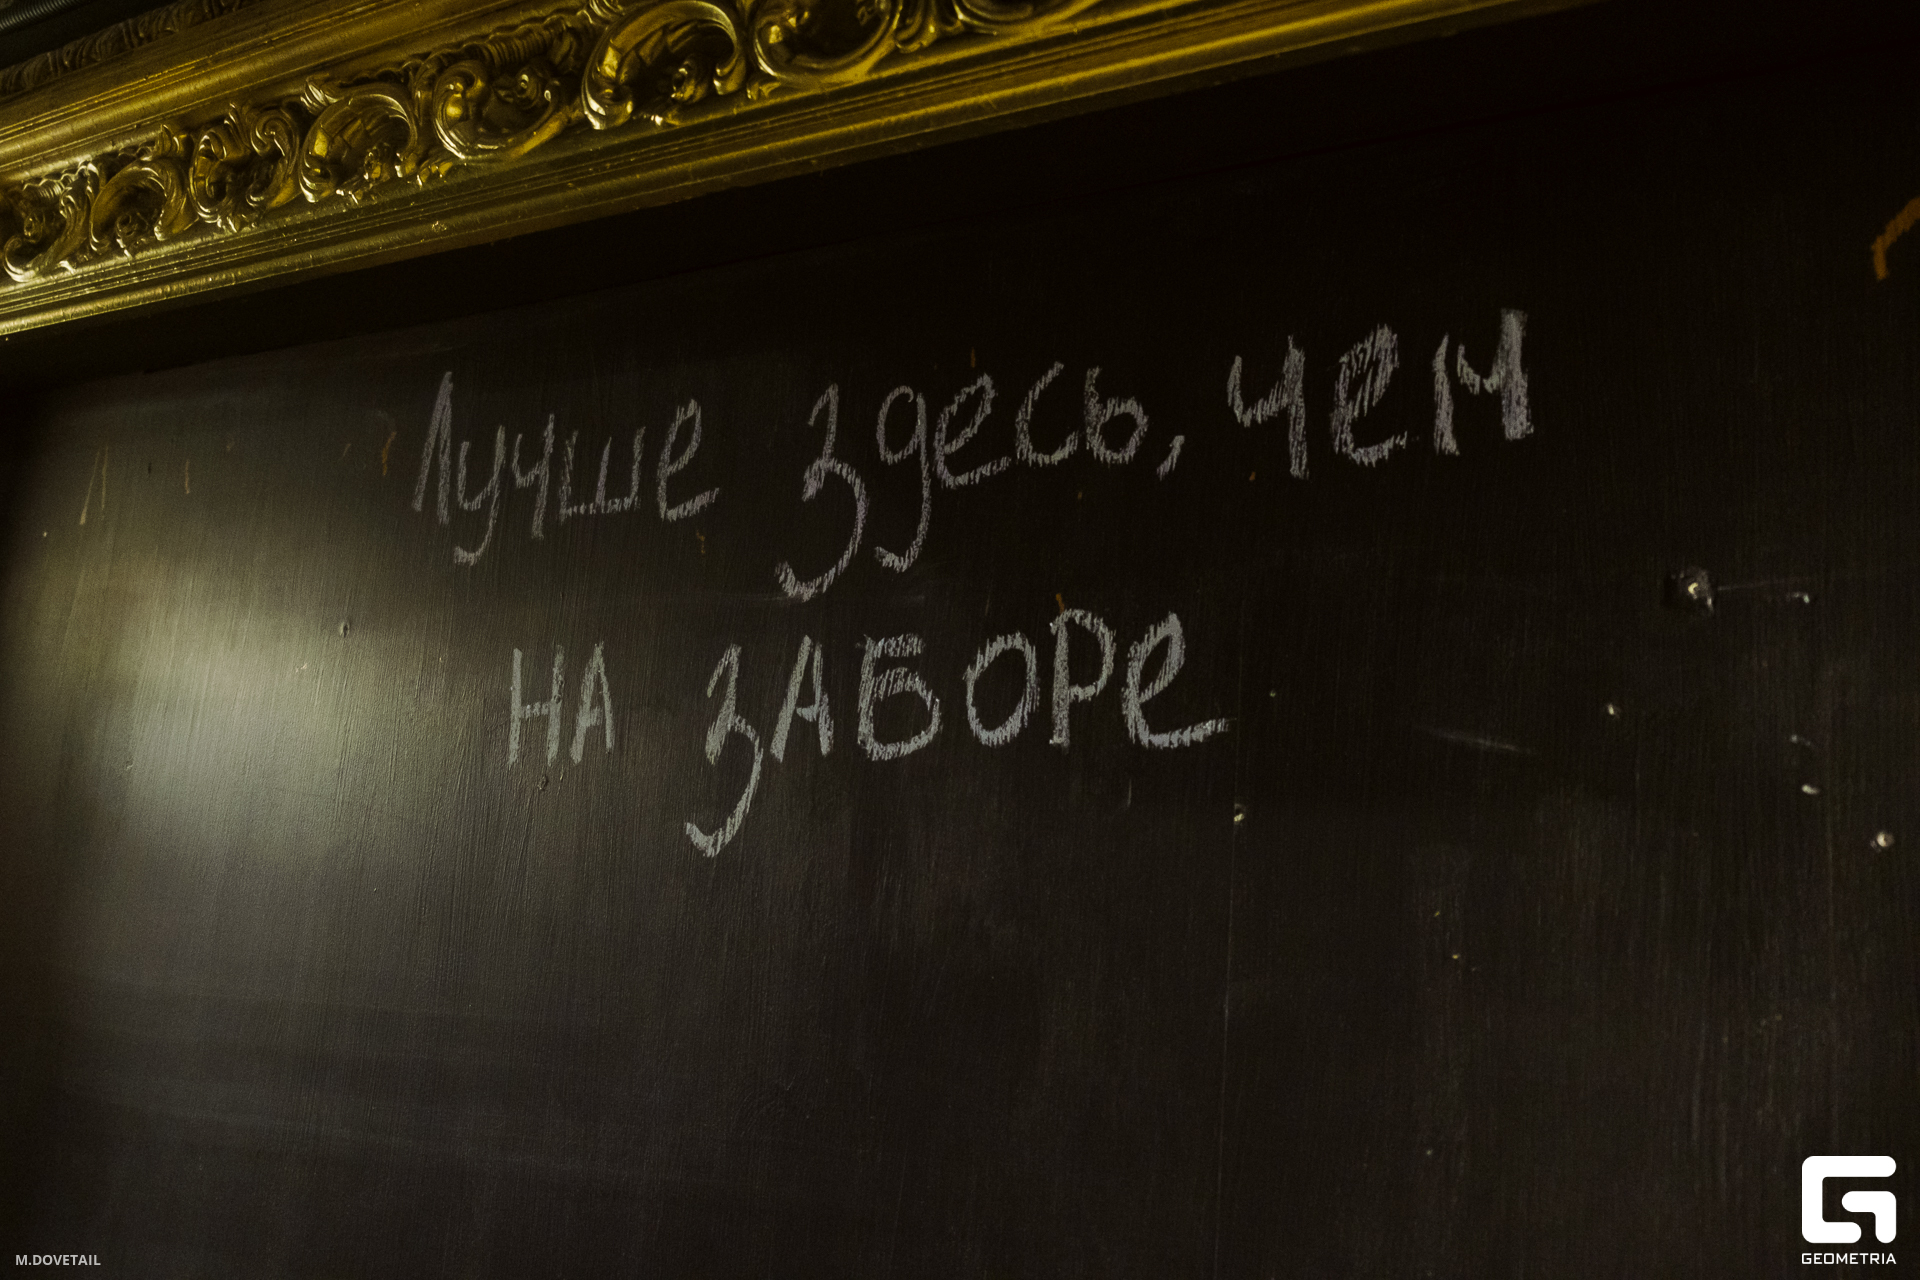 Лучше здесь, чем
на заборе
M.DOVETAIL
GEOMETRIA